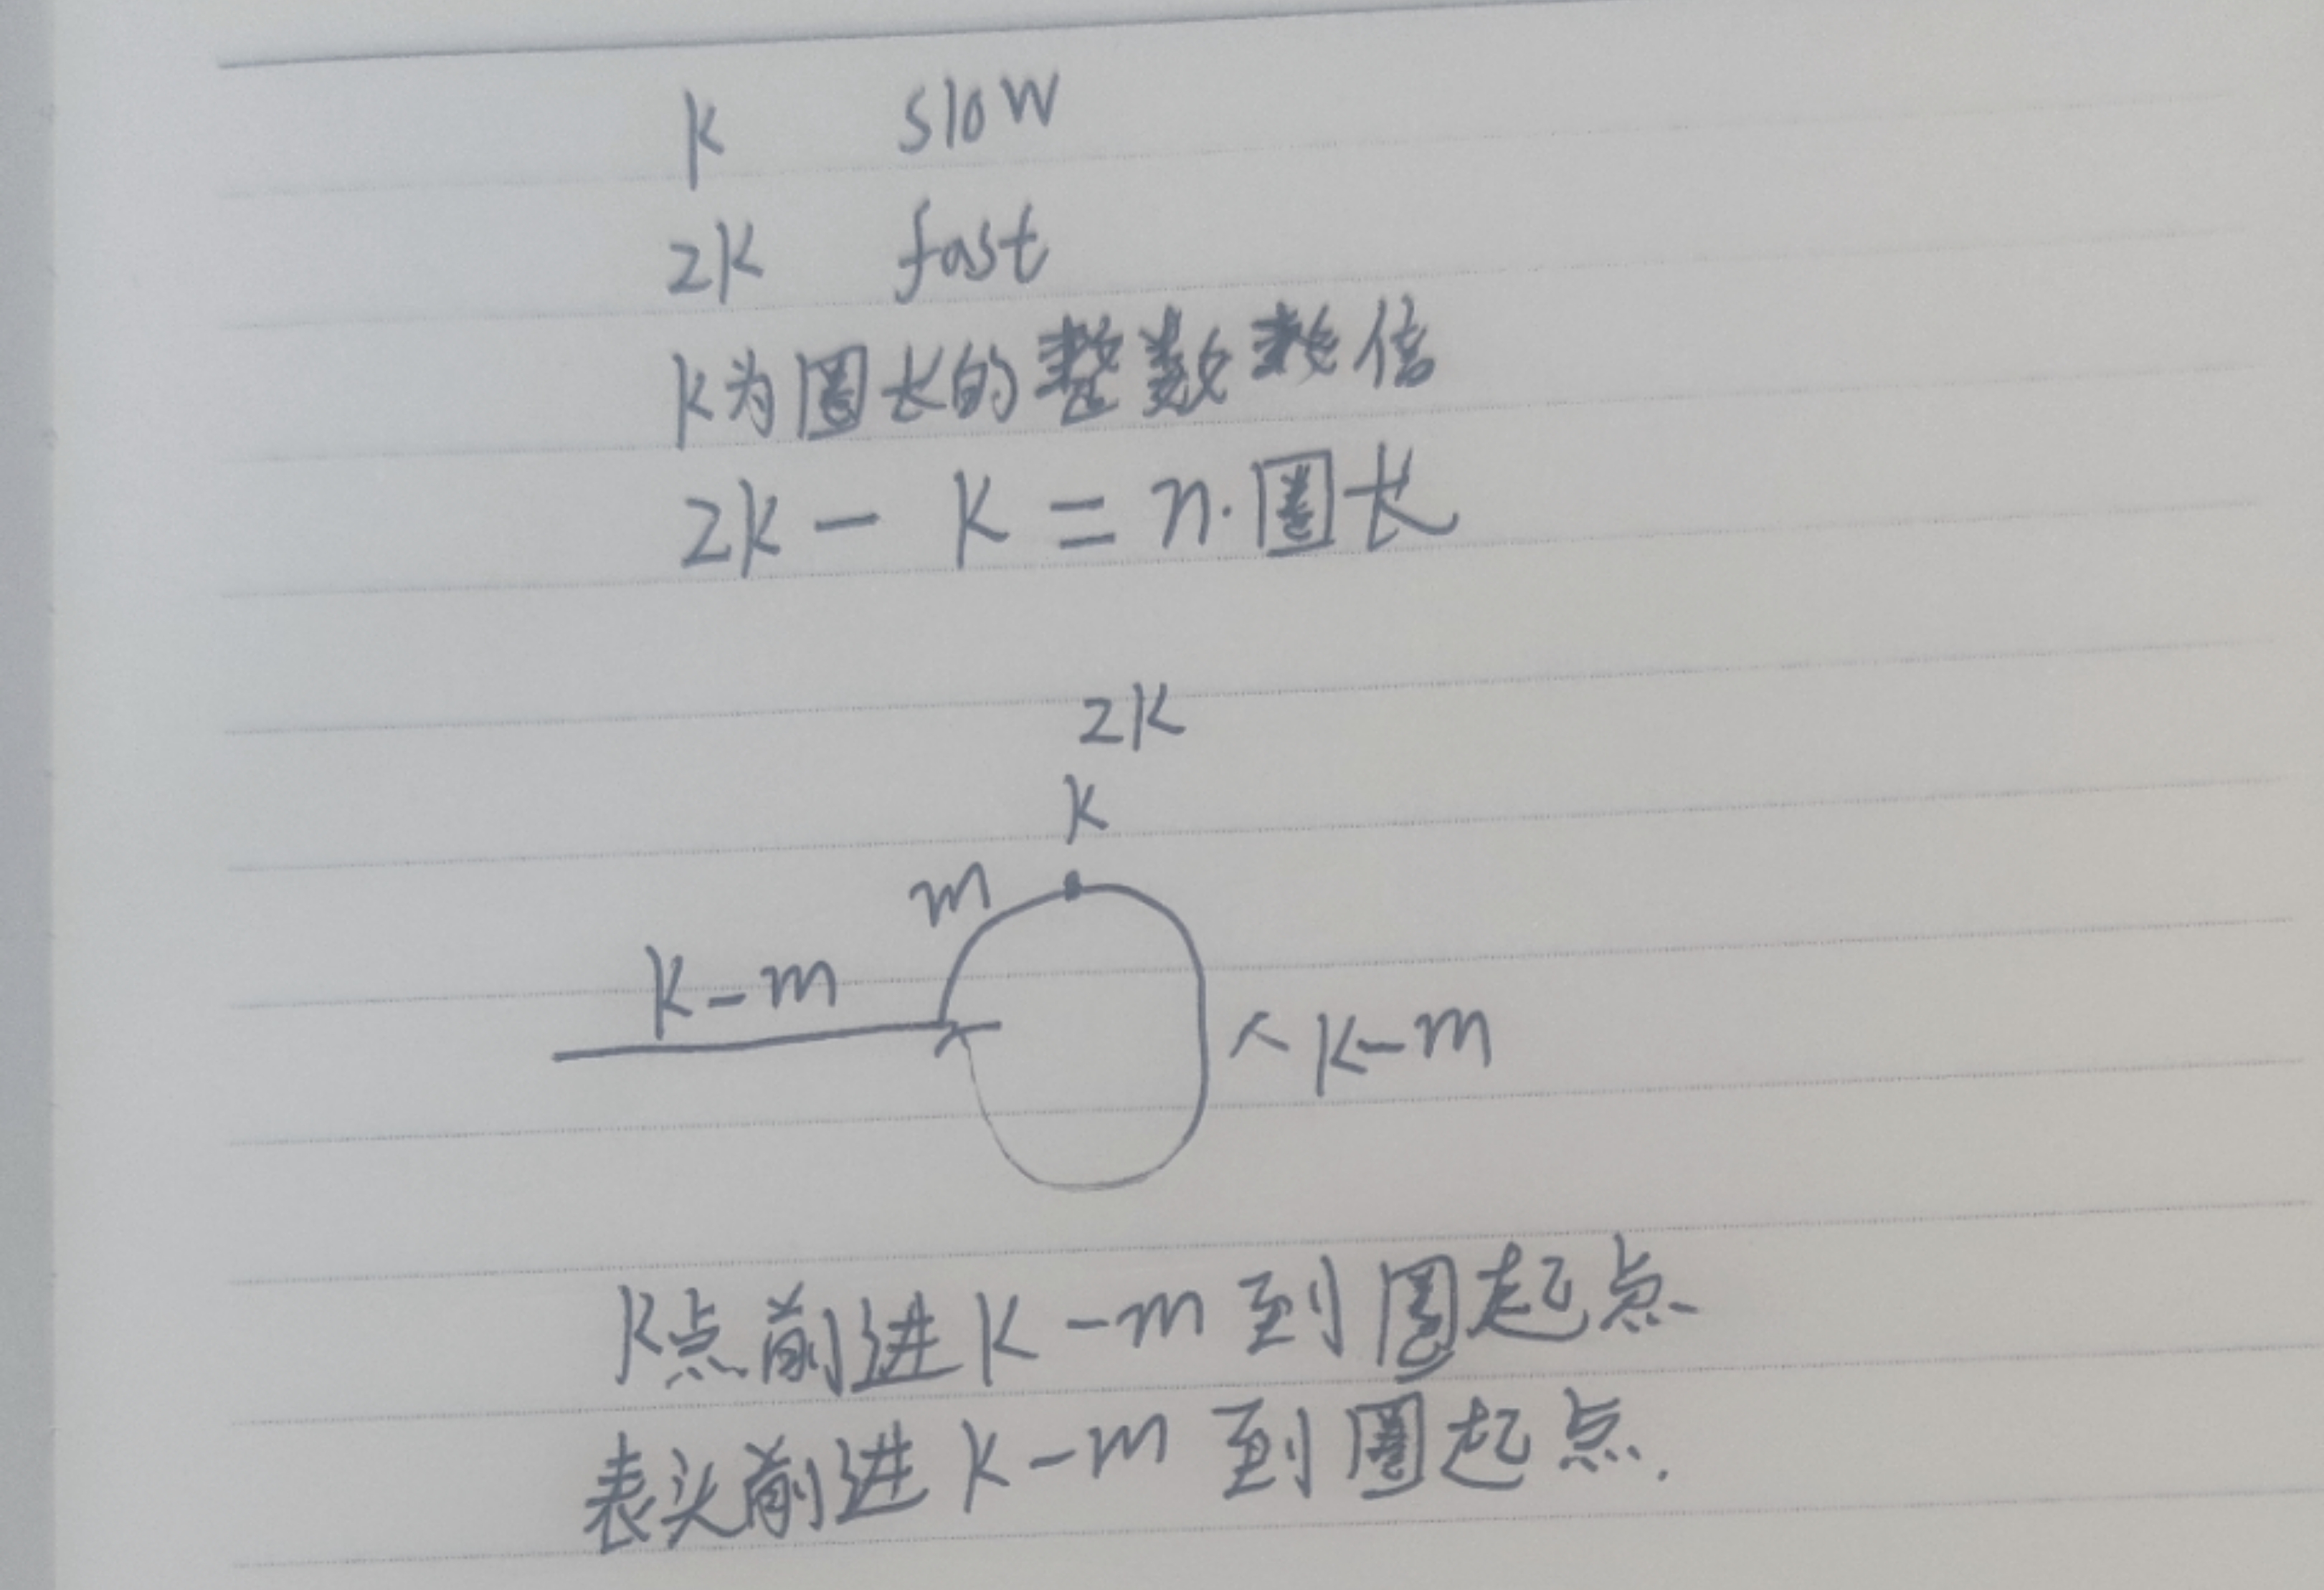 k slow
2k fast
k为圈长的整数倍
2k - k = n·圈长
2k
k
m
k-m
k-m
k点前进k-m到圈起点
表头前进k-m到圈起点.